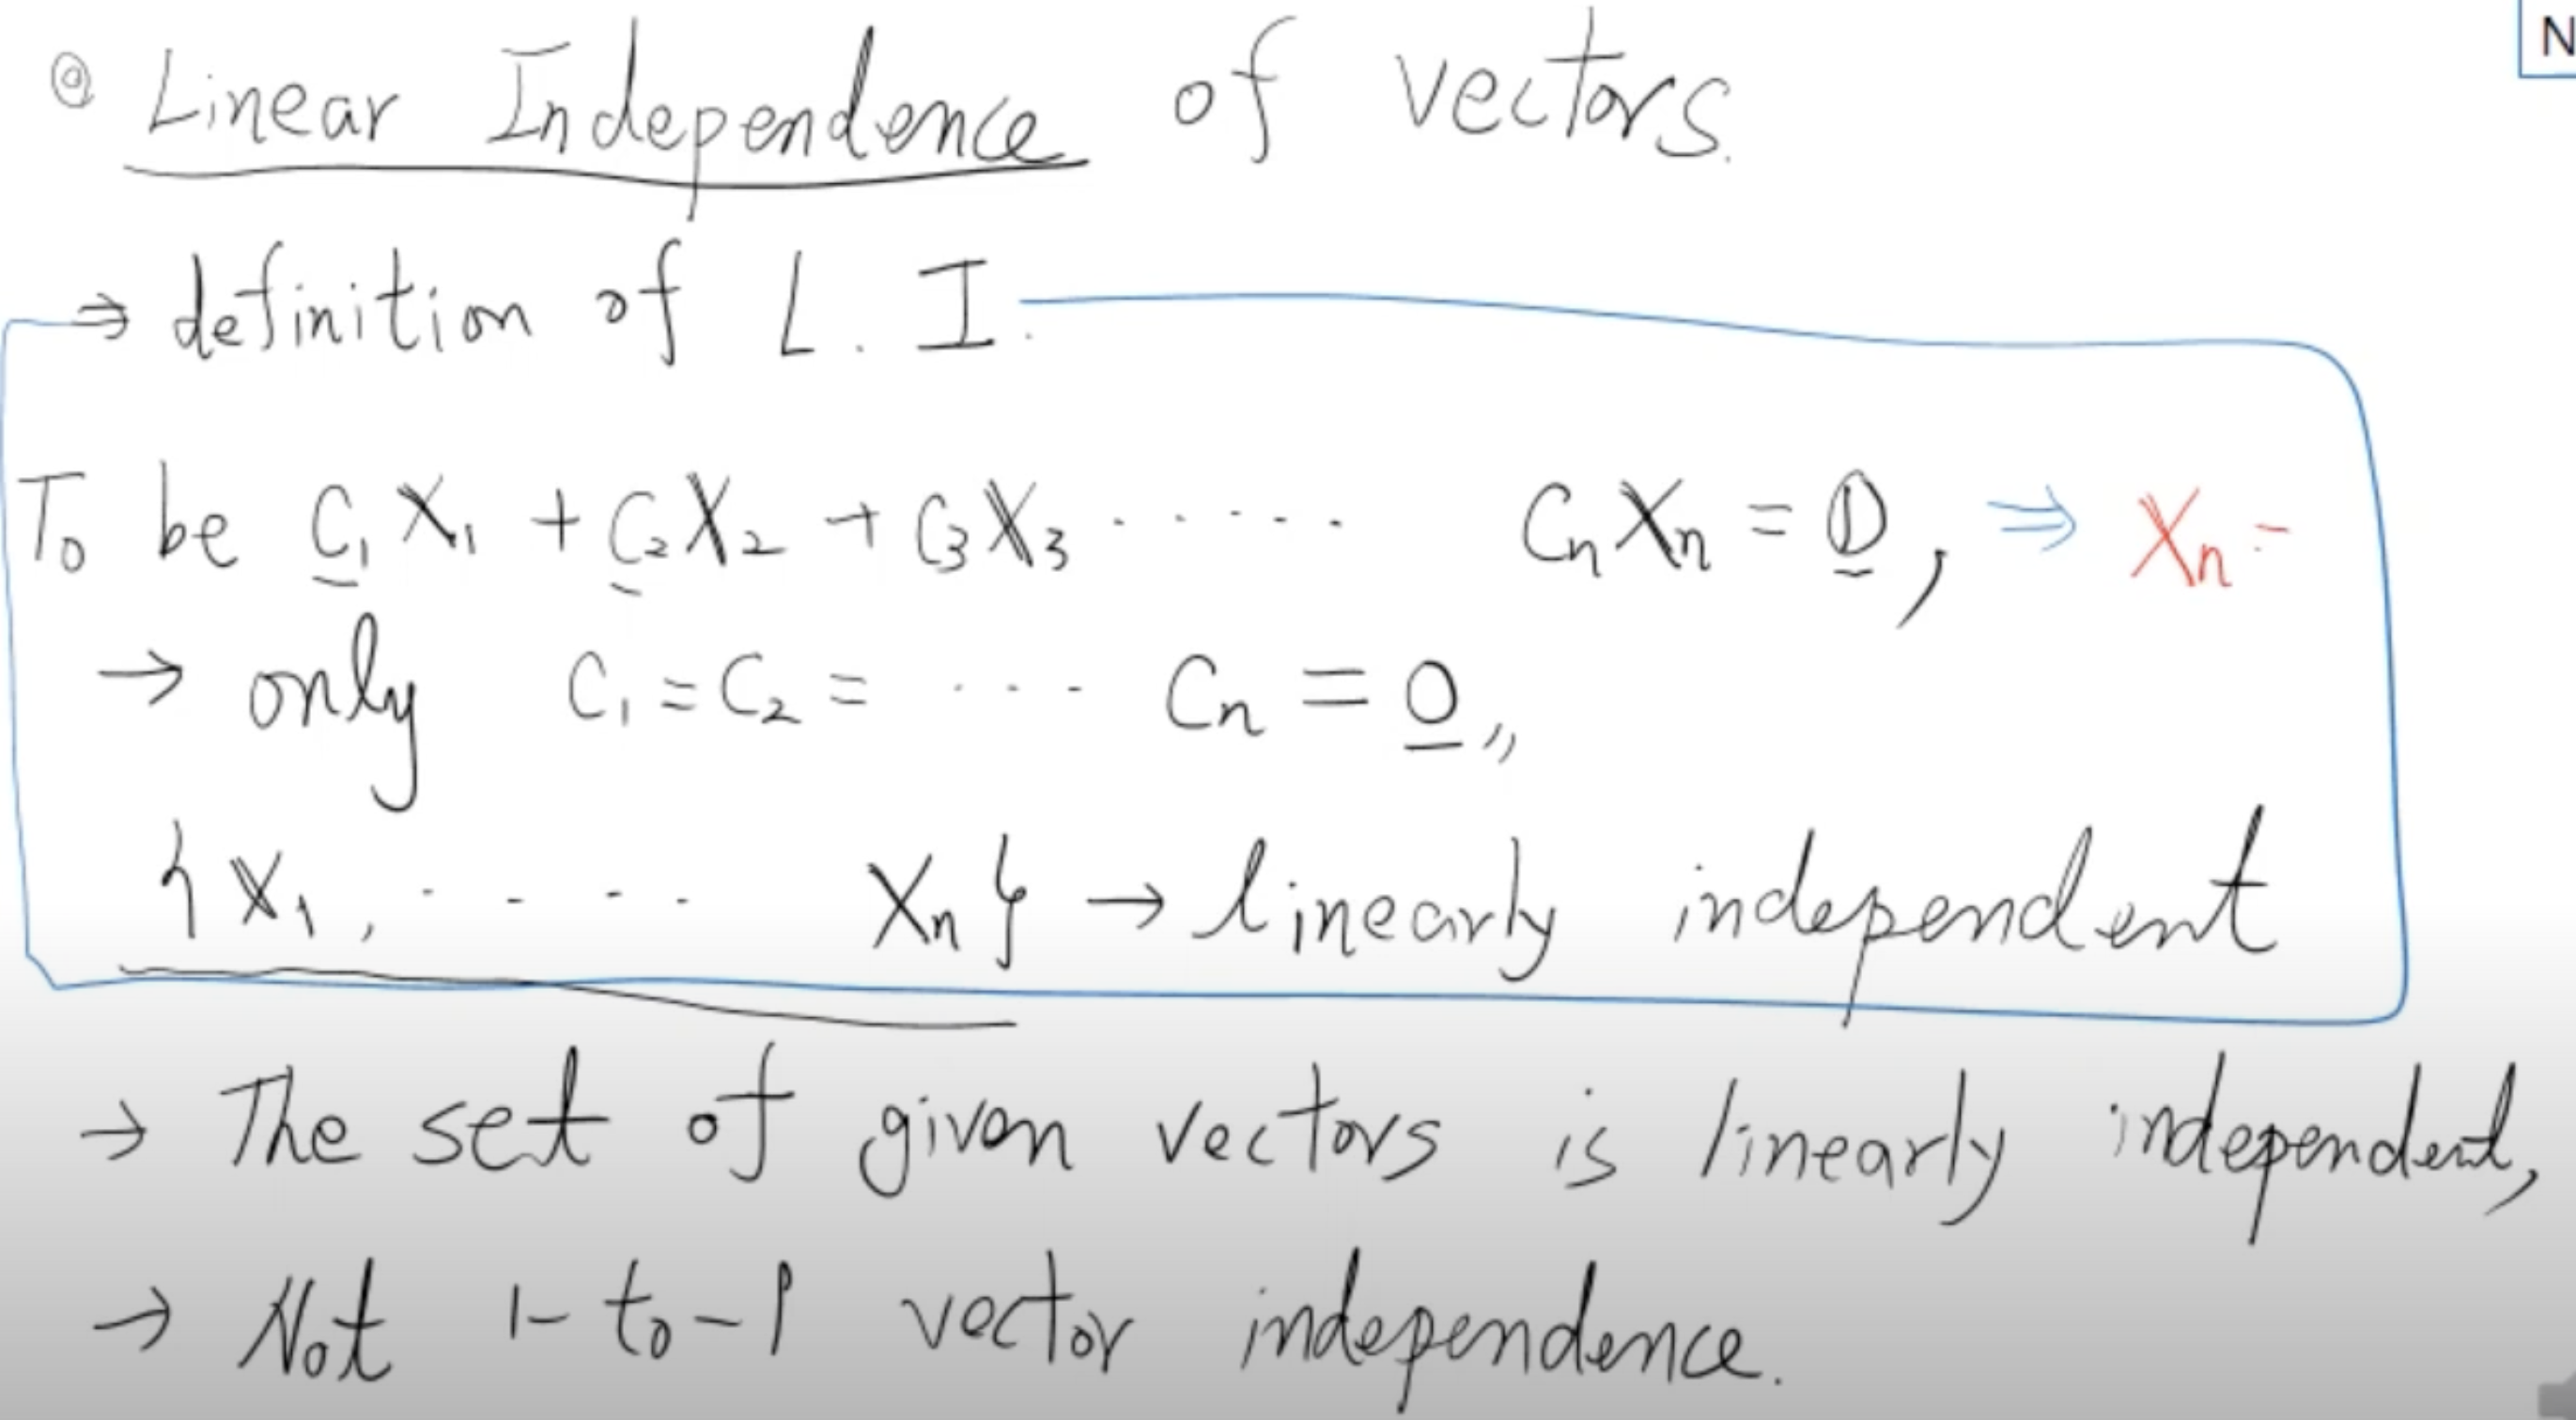 ◎ Linear Independence of vectors.
⇒ definition of L. I.
To be C₁X₁ + C₂X₂ + C₃X₃ ····· CₙXₙ = 𝟘, ⇒ Xₙ =
→ only C₁ = C₂ = ··· Cₙ = 0,,
{X₁, ···· Xₙ} → linearly independent
→ The set of given vectors is linearly independent,
→ Not 1-to-1 vector independence.